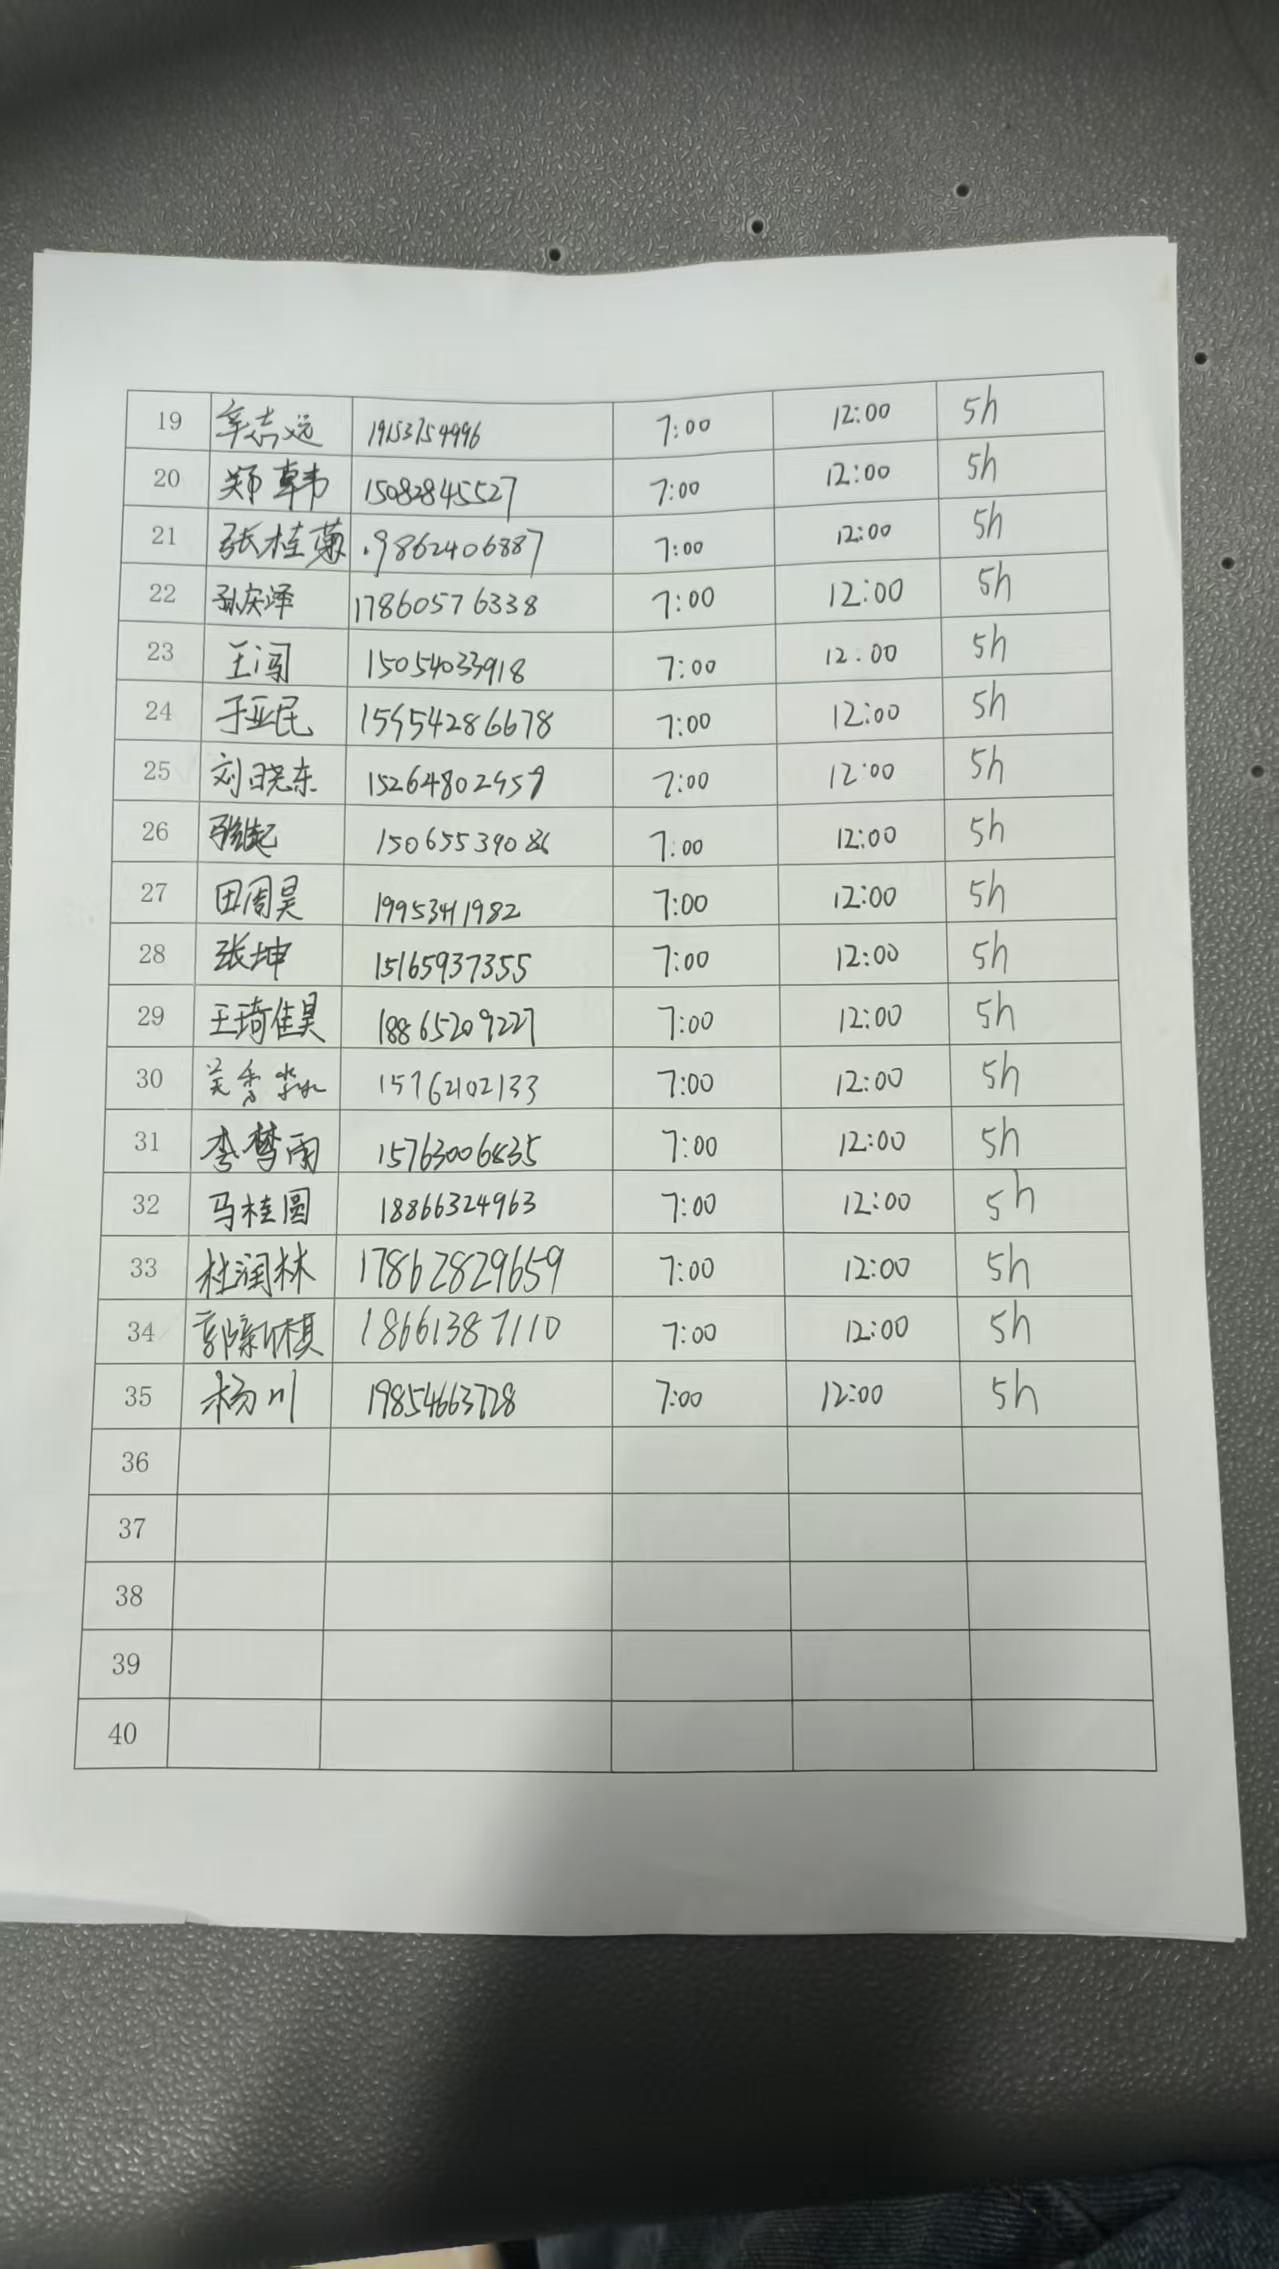 19 辛志远 19153754996 7:00 12:00 5h
20 郑韩 15082845527 7:00 12:00 5h
21 张桂菊 .9862406887 7:00 12:00 5h
22 孙庆泽 17860576338 7:00 12:00 5h
23 王闯 15054033918 7:00 12:00 5h
24 于亚民 15954286678 7:00 12:00 5h
25 刘晓东 7:00 12:00 5h
26 15065539086 7:00 12:00 5h
27 田周昊 19953411982 7:00 12:00 5h
28 张坤 15165937355 7:00 12:00 5h
29 王琦佳昊 18865209227 7:00 12:00 5h
30 15762102133 7:00 12:00 5h
31 李梦雨 15763006835 7:00 12:00 5h
32 马桂圆 18866324963 7:00 12:00 5h
33 杜润林 17862829659 7:00 12:00 5h
34 郭新棋 18661387110 7:00 12:00 5h
35 杨川 19854663728 7:00 12:00 5h
36
37
38
39
40